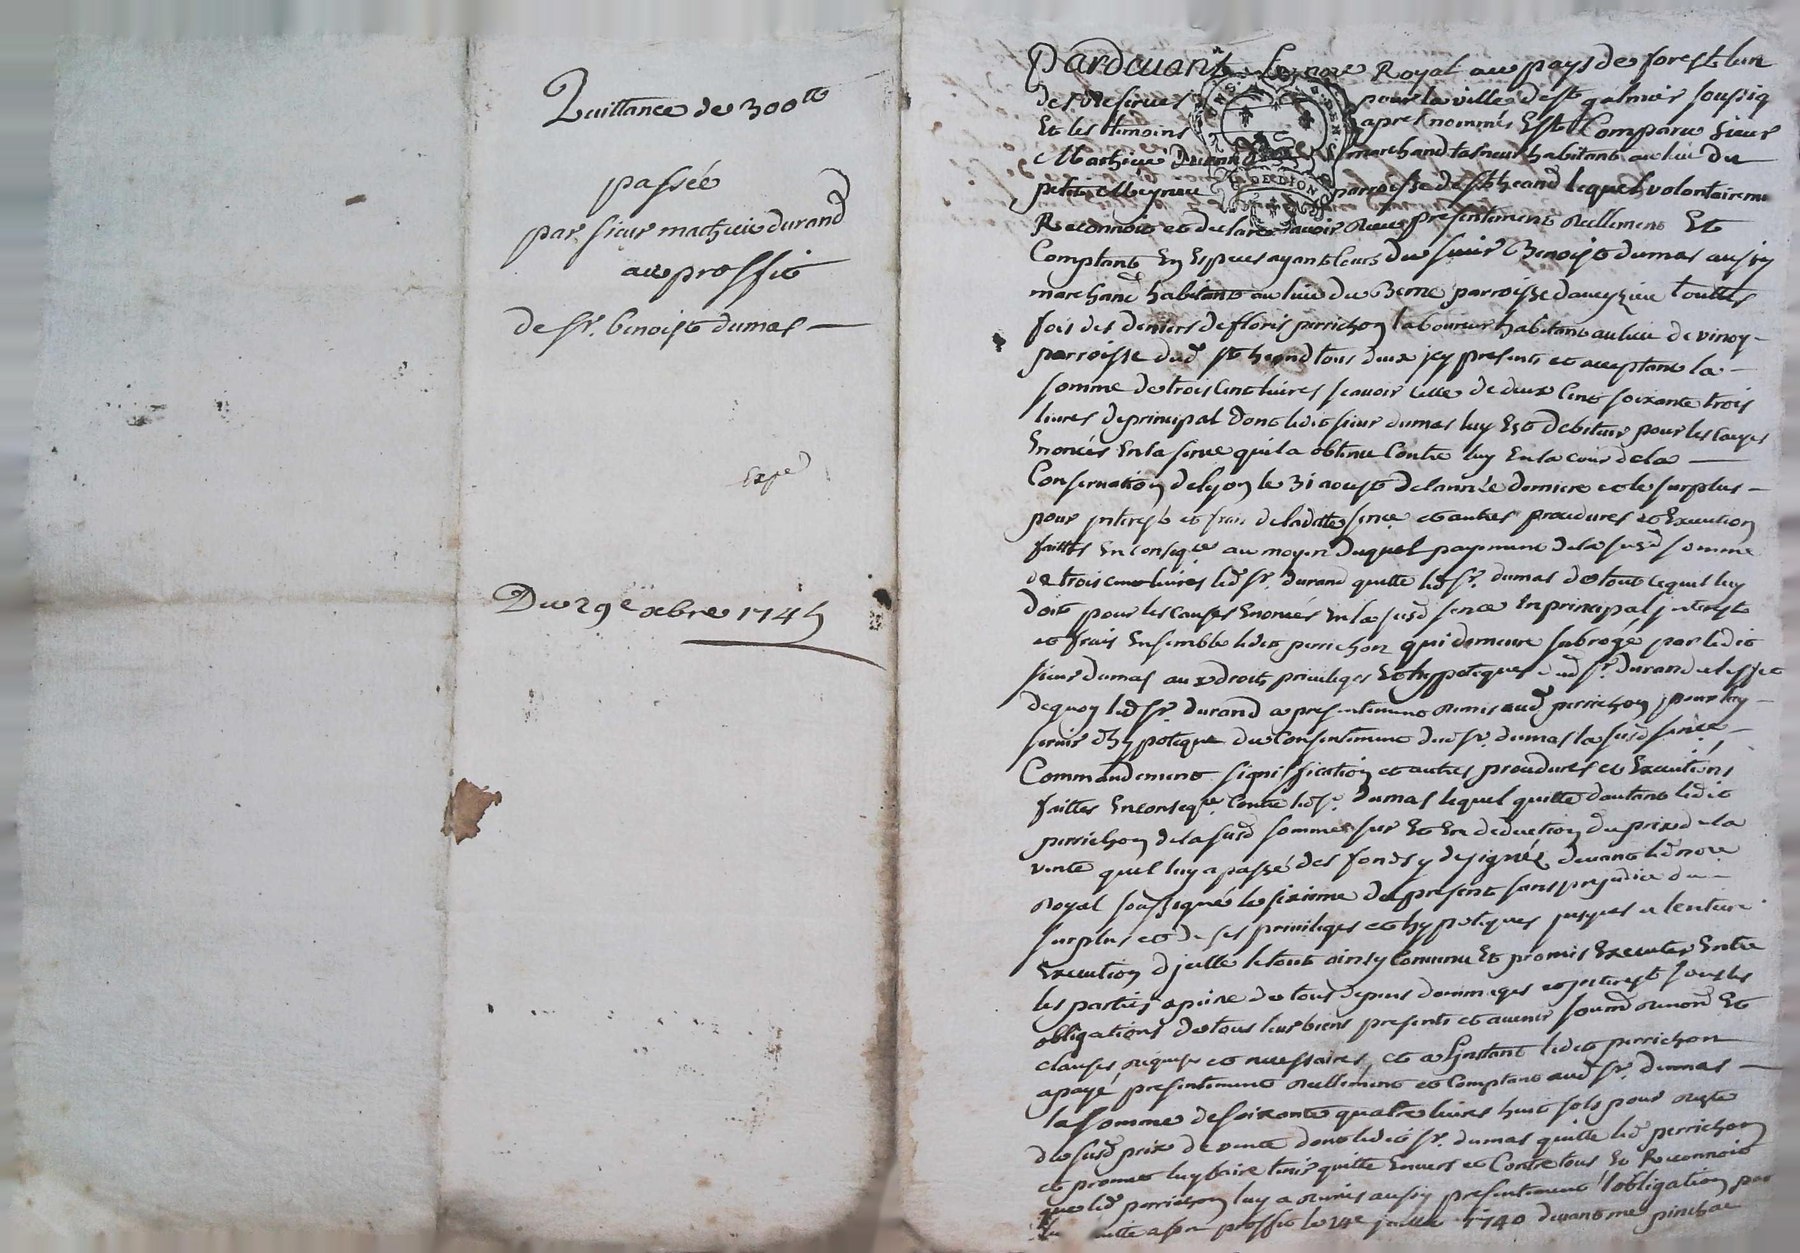 Quittance de 300tt
passée
par sieur mathieu durand
au proffit
de Sr. benoist dumas
Expé
Du 29e xbre 1745
Pardevant Le nore Royal au pays de forest lun
des reserves pour la ville de st galmier soussig
Et les temoins apres nommés Est Comparu sieur
Mathieu Durand marchand habitant au lieu du
petit Meyneu parroisse de st heand lequel volontairemt
Reconnoit et declare avoir Receu presentement reellement Et
Comptant En Especes ayant cours Du sieur Benoist dumas aussy
marchand habitant au lieu du Berne parroisse daveyzieu touttes
fois des deniers de floris perrichon laboureur habitant au lieu de vinoy
parroisse dud st heand tous deux jcy presents et acceptant la
somme de trois cent livres scavoir celle de deux Cent soixante trois
livres de principal dont ledit sieur dumas luy Est debiteur pour les causes
Enoncés En la sence quil a obtenue Contre luy En la cour de la
Conservation de lyon le 31 aoust de lannée derniere et le surplus
pour interest et frais de ladtte sence et autres procedures et Execution
faittes En conseqce au moyen duquel payement de la susd somme
de trois cent livres led Sr. durand quitte led Sr. dumas de tout ce quil luy
doit pour les causes Enoncés En la susd sence En principal interest
et frais Ensemble ledit perrichon qui demeure subrogé par ledit
sieur dumas aux droits privileges Et hyppoteques dud Sr. durand a leffet
de quoy led Sr. durand a presentement remis aud perrichon pour luy
servir dhypoteque du Consentement dud Sr. dumas la susd sence
Commandement signiffication et autres procedures et Executions
faittes En conseqce Contre led Sr. dumas lequel quitte dautant ledit
perrichon de la susd somme sur Et En deduction du prix de la
vente quel luy a passé des fonds y designés devant led nore
Royal soussigné le sixieme du present sans prejudice du
surplus et de ses privileges et hypoteques jusques a lentiere
Execution djcelle le tout ainsy Convenu Et promis Executer Entre
les parties a peine de tous depens dommages et jnterest sous les
obligations de tous leurs biens presents et avenir soumd renond Et
clauses requises et necessaires, et a Linstant ledit perrichon
a payé presentement reellement et Comptant aud Sr. dumas
la somme de soixante quatre livres huit sols pour reste
du susd prix de vente dont ledit Sr. dumas quitte led perrichon
et promet luy faire tenir quitte Envers et Contre tous Et Reconnoit
que led perrichon luy a remis aussy presentement lobligation
a son proffit le 24e juillet 1740 devant me pinchae